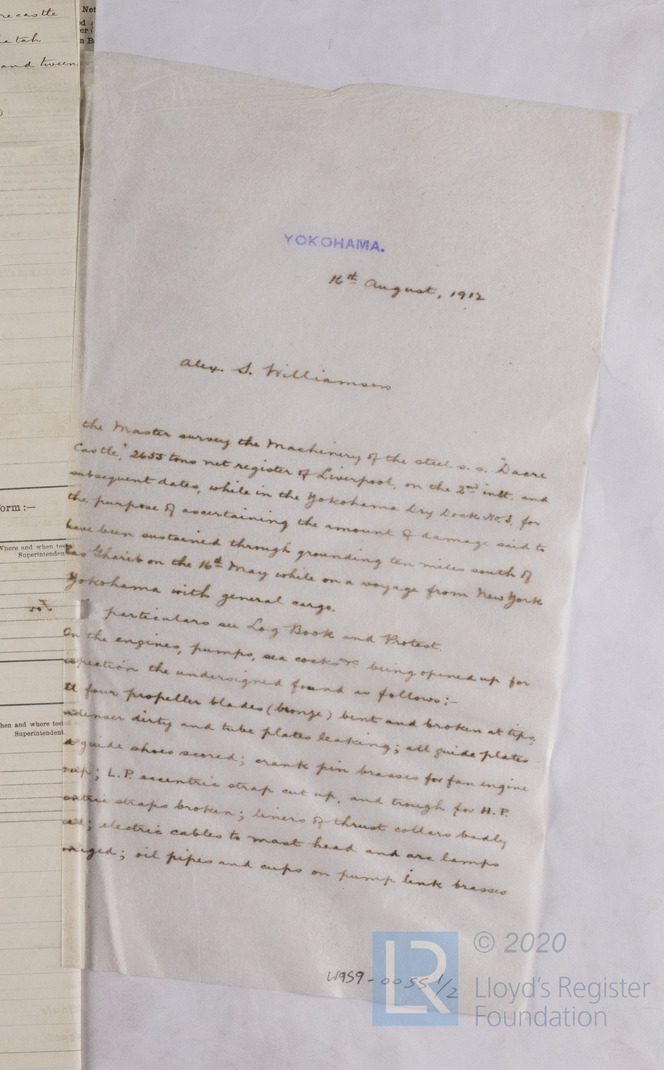 recastle
and tween
YOKOHAMA.
16th August, 1912
Alex. S. Williamson
the Master survey the Machinery of the steel s.s. "Dacre
Castle," 2655 tons net register of Liverpool, on the 2nd inst. and
subsequent dates, while in the Yokohama Dry Dock No.3, for
the purpose of ascertaining the amount of damage said to
have been sustained through grounding ten miles south of
Ras Gharib on the 16th May while on a voyage from New York
Yokohama with general cargo.
particulars see Log Book and Protest.
On the engines, pumps, sea cocks &c being opened up for
spection the undersigned found as follows:-
ll four propeller blades (bronze) bent and broken at tips,
ndenser dirty and tube plates leaking; all guide plates
d guide shoes scored; crank pin brasses for fan engine
L.P. eccentric strap cut up, and trough for H.P.
centric straps broken; liners of thrust collars badly
ed; electric cables to mast head and arc lamps
maged; oil pipes and cups on pump link brasses
orm:—
Where and when test
Superintendent
hen and where test
Superintendent
W959-0055 1/2
LR
© 2020
Lloyd's Register
Foundation